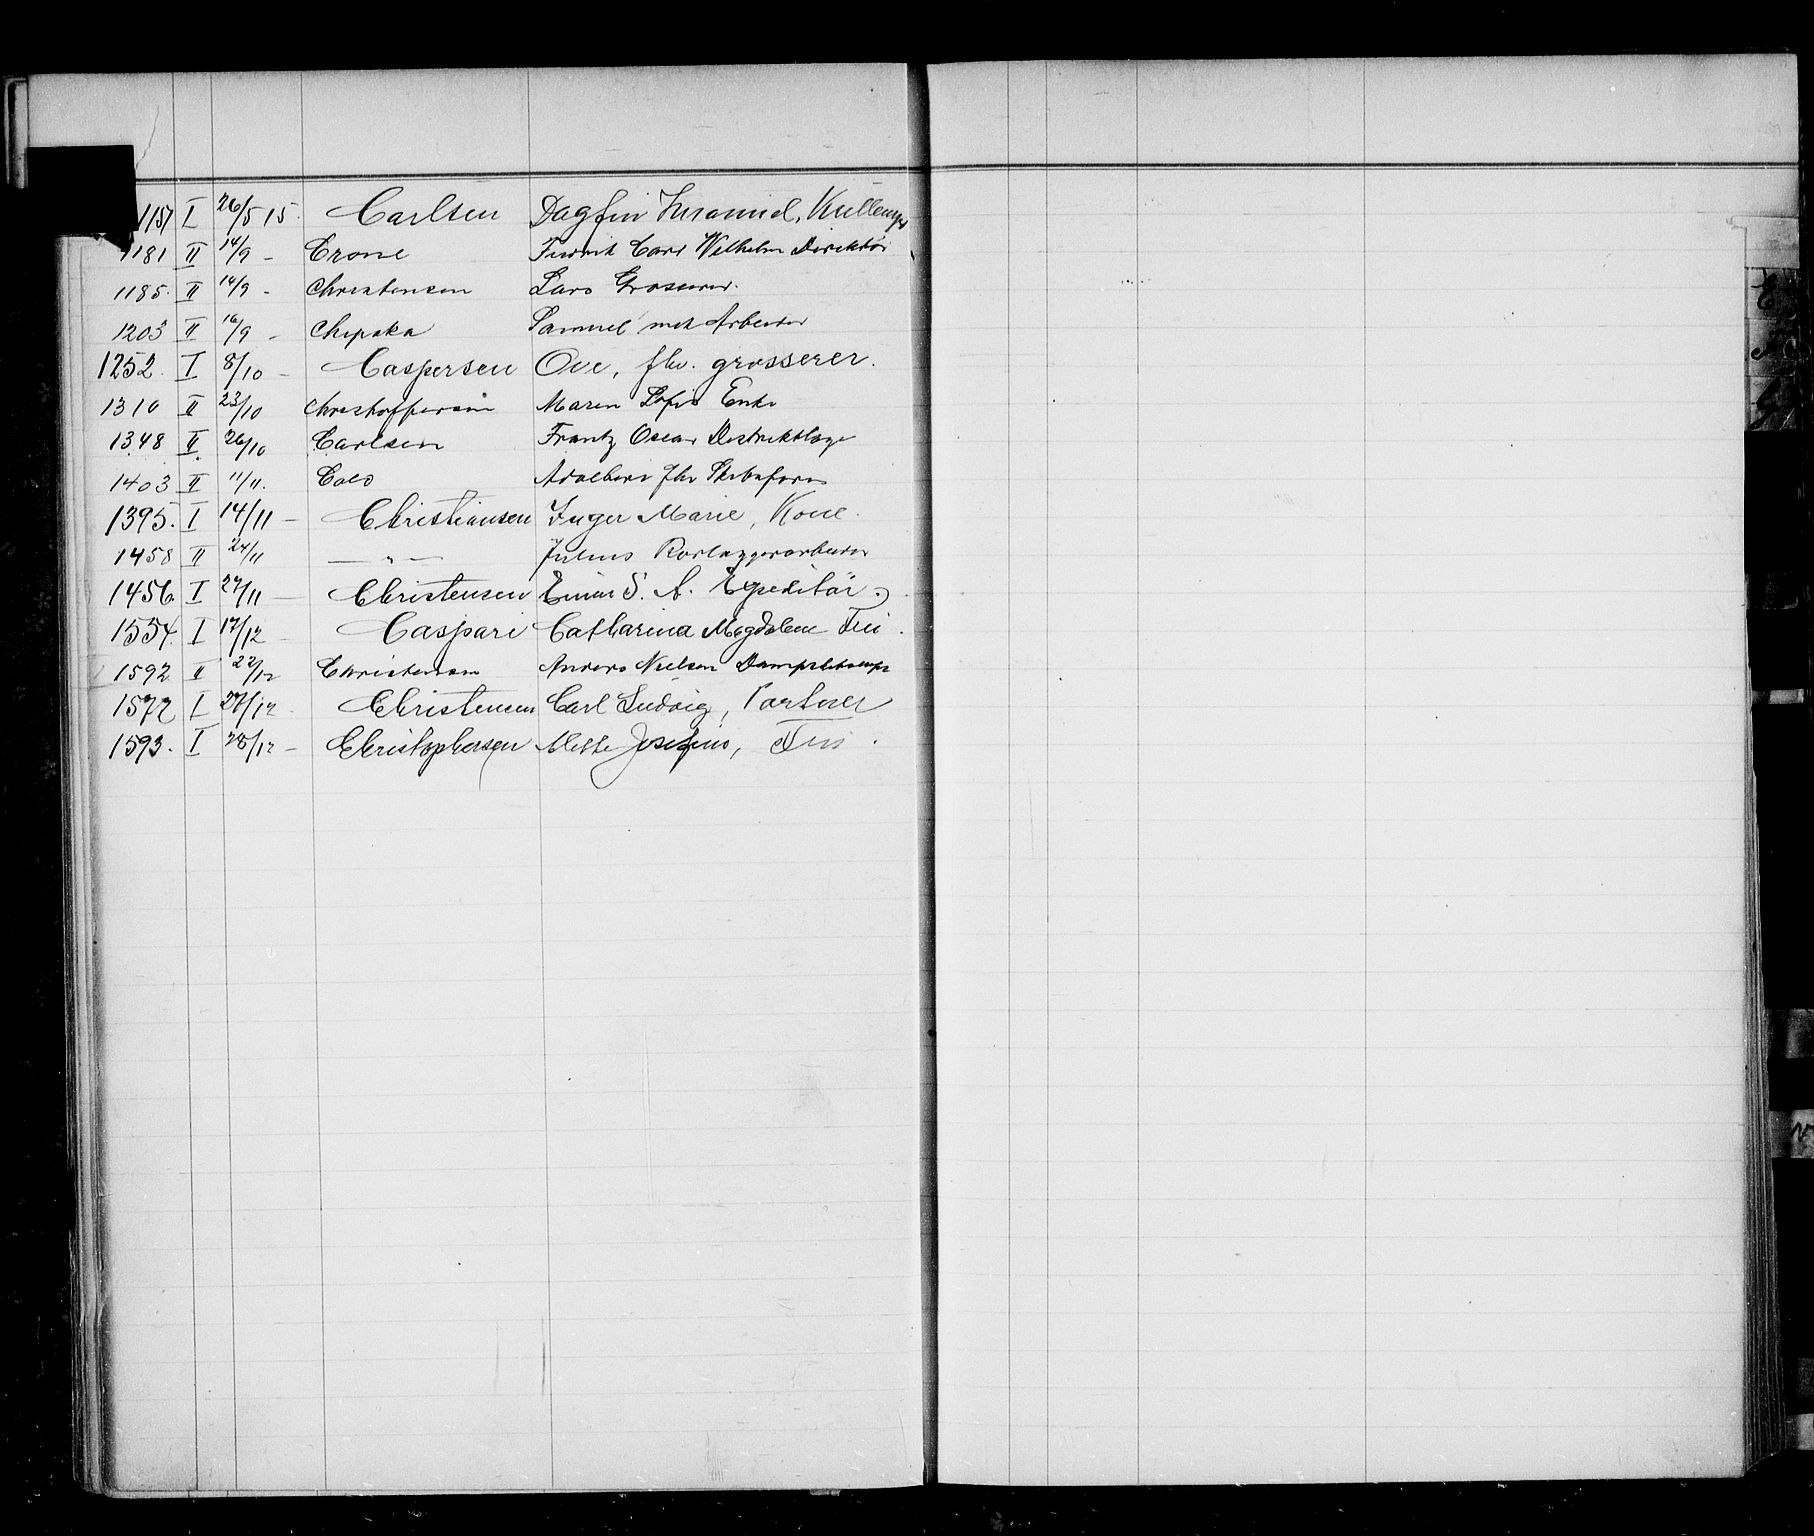 1157 I 26/5 15. Carlsen Dagfin
1181 II 14/9 - Crone Fredrik Carl Wilhelm Direktör
1185. II 14/9 - Christensen Lars Grosserer.
1203 II 16/9 - Chepaka Samuel Arbeider
1252. I 8/10 - Caspersen Ove, fhv. grosserer.
1310 II 23/10 Christoffersen Maren Sofie Enke
1348 II 26/10 Carlsen Frantz Oscar Distriktlæge
1403 II 11/11. Adalbert fhv
1395. I 14/11 - Christiansen Inger Marie, Kone.
1458 II 24/11 — " — Julius Rørlæggerarbeider
1456. I 27/11 - Christensen Einar S. A. Expeditör.
1554. I 17/12 - Caspari Catharina Magdalene Frk.
1592 II 22/12 Christensen Anders Nielsen
1577 I 27/12 Christensen Carl Ludvig, Portner
1593. I 28/12 - Christophersen Mette Josefine,